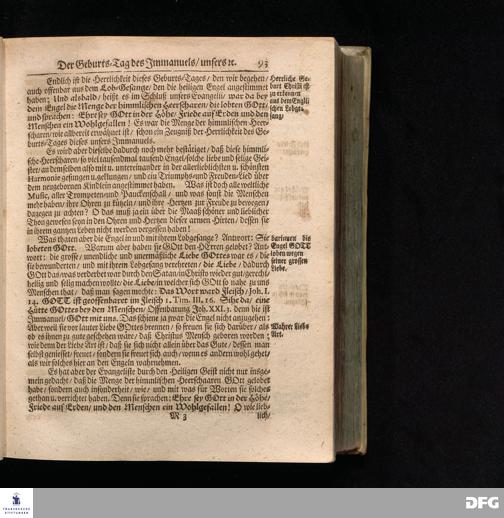 Der Geburts-Tag des Immanuels/ unsers ꝛc. 93
Endlich ist die Herrlichkeit dieses Geburts-Tages/ den wir begehen/
auch offenbar aus dem Lob-Gesange/ den die heiligen Engel angestimmet
haben; Und alsbald/ heißt es im Schluß unsers Evangelii/ war da bey
dem Engel die Menge der himmlischen Heerscharen/ die lobten GOtt/
und sprachen: Ehre sey GOtt in der Höhe/ Friede auf Erden und den
Menschen ein Wohlgefallen! Es war die Menge der himmlischen Heer-
scharen/ wie allbereit erwähnet ist/ schon ein Zeugniß der Herrlichkeit des Ge-
burts-Tages dieses unsers Immanuels.
Herrliche Ge-
burt Christi ist
zu erkennen
aus dem Engli-
schen Lobge-
sang/
Es wird aber dieselbe dadurch noch mehr bestätiget/ daß diese himmli-
sche Heerscharen/ so viel tausendmal tausend Engel/ solche liebe und selige Gei-
ster/ an demselben also mit u. untereinander in der allerlieblichsten u. schönsten
Harmonie gesungen u. geklungen/ und ein Triumphs- und Freuden-Lied über
dem neugebornen Kindlein angestimmet haben. Was ist doch alle weltliche
Music, aller Trompeten- und Pauckenschall/ und was sonst die Menschen
mehr haben/ ihre Ohren zu kützeln/ und ihre Hertzen zur Freude zu bewegen/
dagegen zu achten? O das muß ja ein über die Maaß schöner und lieblicher
Thon gewesen seyn in den Ohren und Hertzen dieser armen Hirten/ dessen sie
in ihrem gantzen Leben nicht werden vergessen haben!
Was thaten aber die Engel in und mit ihrem Lobgesange? Antwort: Sie
lobeten GOtt. Warum aber haben sie GOtt den HErrn gelobet? Ant-
wort: die grosse/ unendliche und unermäßliche Liebe GOttes war es/ die
sie bewunderten/ und mit ihrem Lobgesang verehreten/ die Liebe/ dadurch
GOtt das/ was verderbet war durch den Satan/ in Christo wieder gut/ gerecht/
heilig und selig machen wollte/ die Liebe/ in welcher sich GOtt so nahe zu uns
Menschen that/ daß man sagen mochte: Das Wort ward Fleisch/ Joh. I.
14. GOTT ist geoffenbaret im Fleisch 1. Tim. III, 16. Sihe da/ eine
Hütte GOttes bey den Menschen/ Offenbarung Joh. XXI. 3. denn hie ist
Immanuel/ GOtt mit uns. Das schiene ja zwar die Engel nicht anzugehen:
Aber weil sie vor lauter Liebe GOttes brennen/ so freuen sie sich darüber/ als
ob es ihnen zu gute geschehen wäre/ daß Christus Mensch geboren worden;
wie denn der Liebe Art ist/ daß sie sich nicht allein über das Gute/ dessen man
selbst geniesset/ freuet/ sondern sie freuet sich auch/ wenn es andern wohl gehet/
als wir solches hier an den Engeln wahrnehmen.
Engel GOTT
loben wegen
seiner grossen
Liebe.
Wahre Liebs
Art.
Es hat aber der Evangeliste durch den Heiligen Geist nicht nur insge-
mein gedacht/ daß die Menge der himmlischen Heerschaaren GOtt gelobet
habe/ sondern auch insonderheit/ wie/ und mit was für Worten sie solches
gethan u. verrichtet haben. Denn sie sprachen: Ehre sey GOtt in der Höhe/
Friede auf Erden/ und den Menschen ein Wohlgefallen! O wie lieb-
M 3 lich/
FRANCKESCHE
STIFTUNGEN
DFG